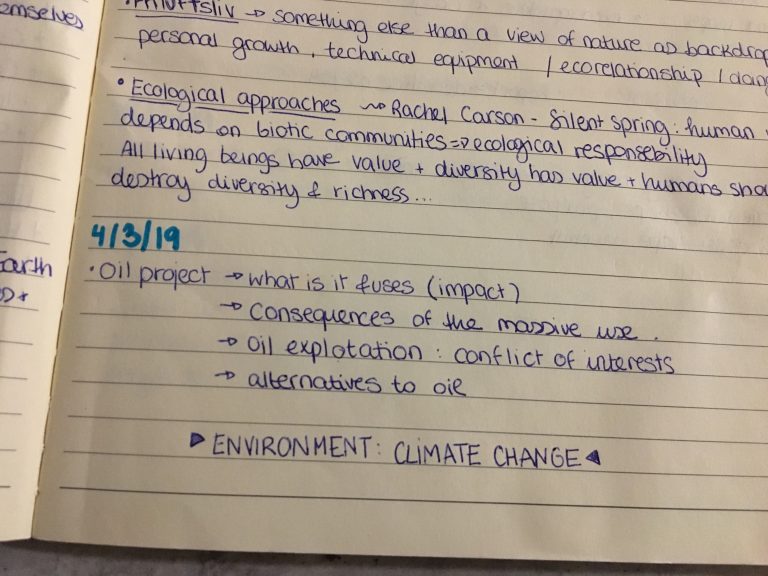 emselves
Friluftsliv → something else than a view of nature as backdrop
personal growth, technical equipment / ecorelationship /
• Ecological approaches ⤳ Rachel Carson - Silent Spring: human
depends on biotic communities => ecological responsebility
All living beings have value + diversity has value + humans
destroy diversity & richness...
4/3/19
Earth
• Oil project → what is it fuses (impact)
→ consequences of the massive use.
→ Oil explotation: conflict of interests
→ alternatives to oil
▶ ENVIRONMENT: CLIMATE CHANGE ◀